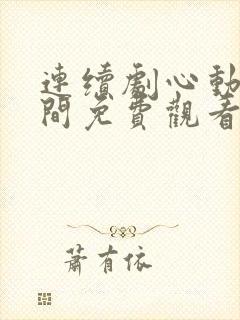 連續劇心動
間免費觀看
蕭有依